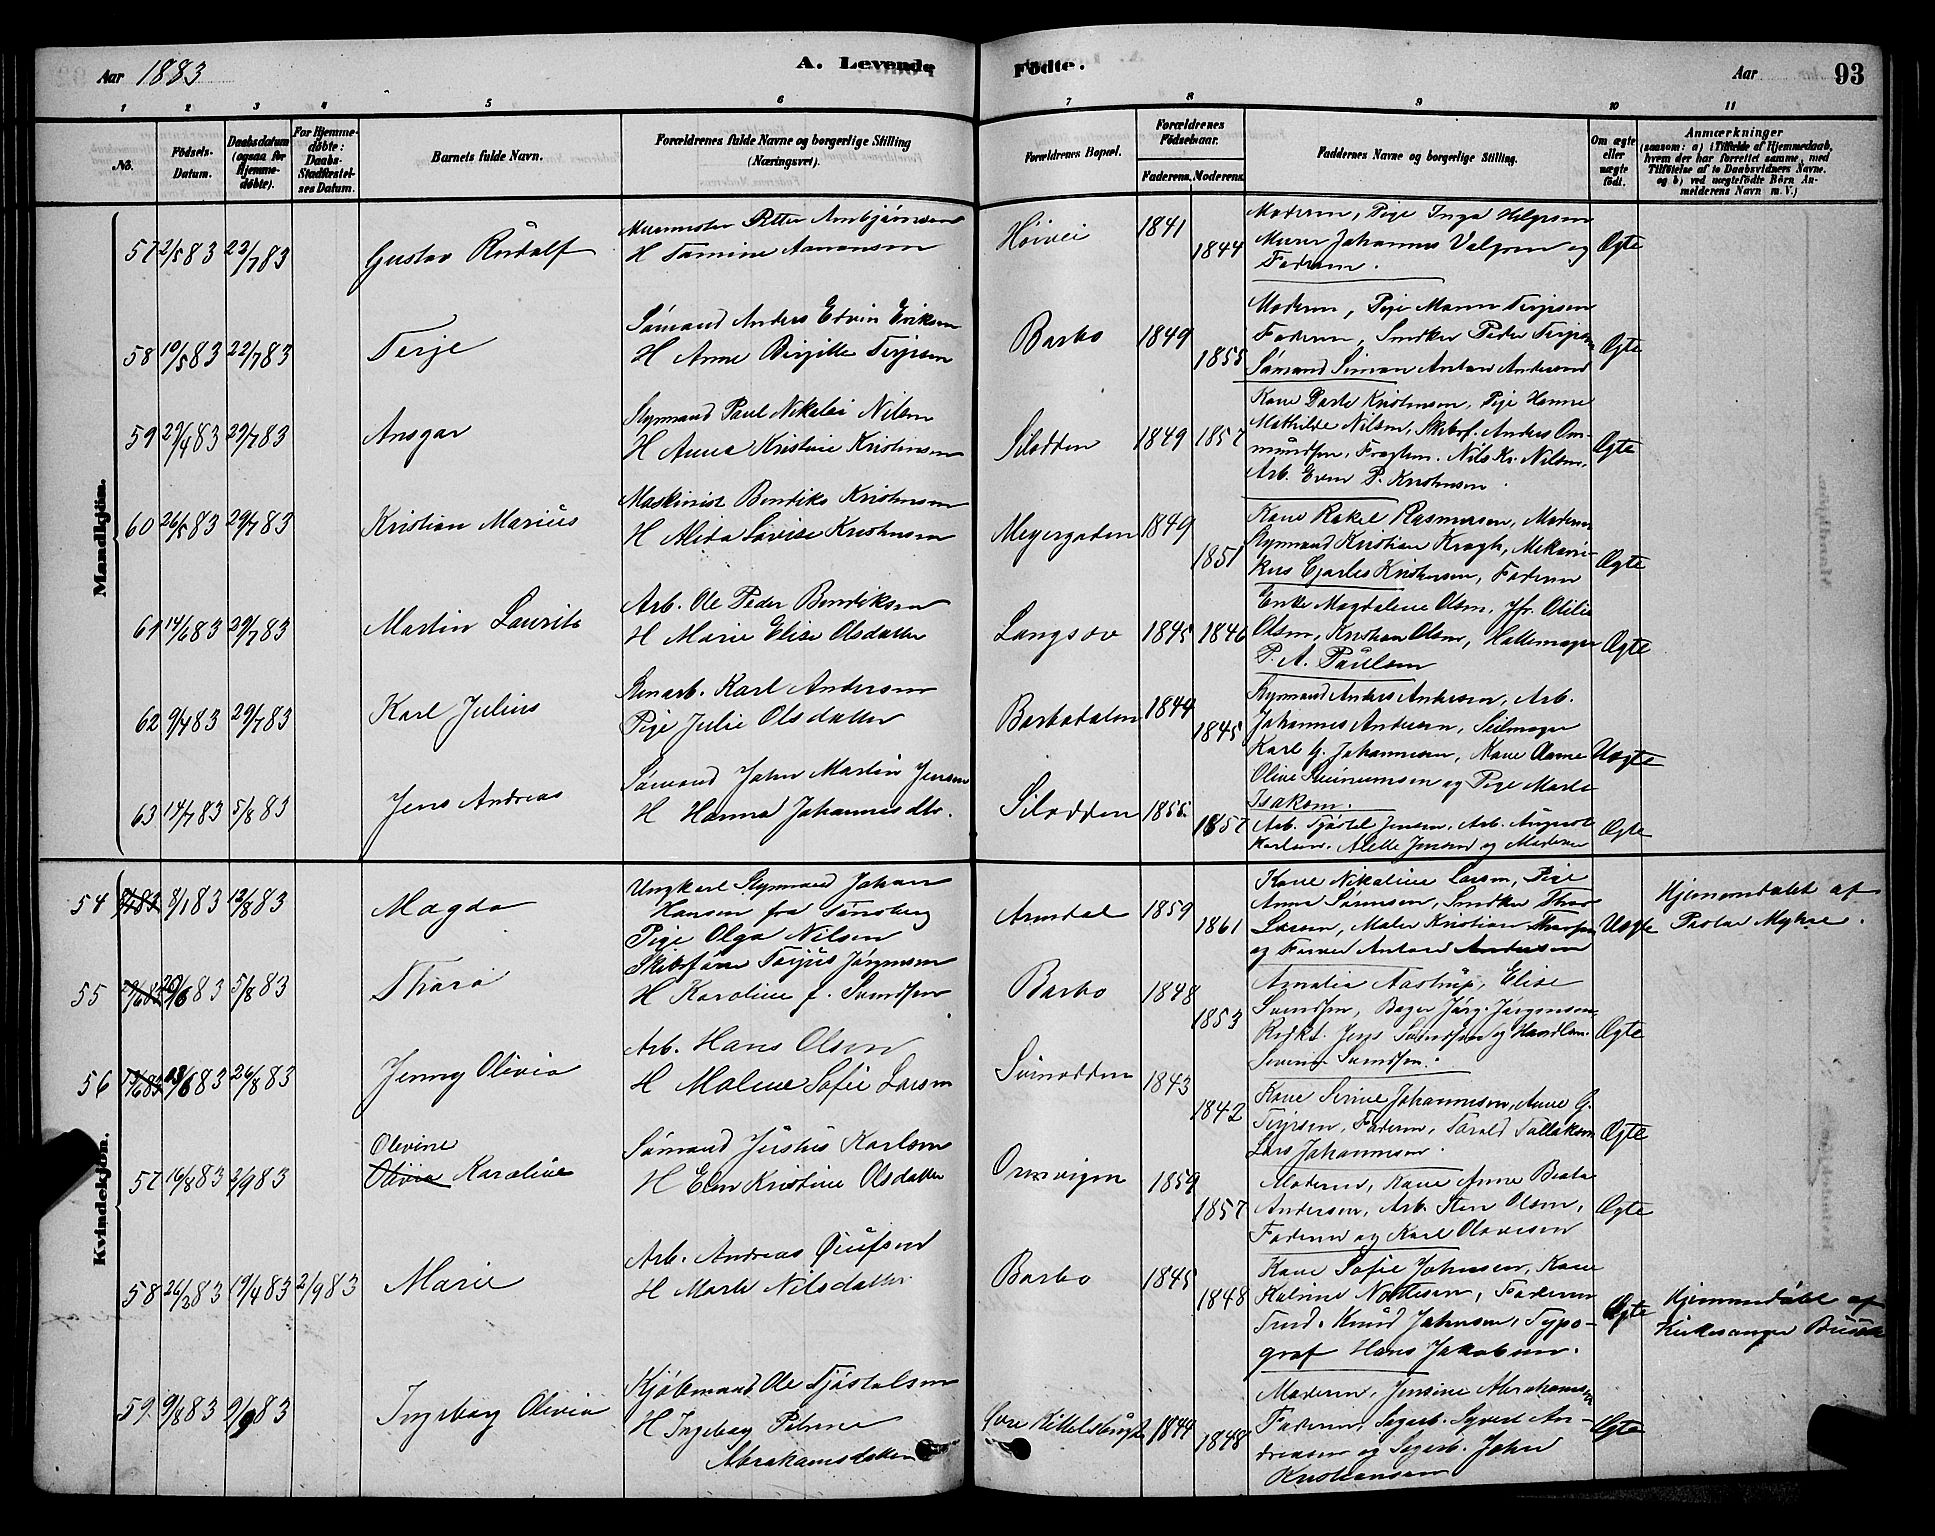 Aar 1883
A. Levende
Fødte.
Aar
93
1 2 3 4 5 6 7 8 9 10 11
No.
Fødsels-
Datum.
Daabsdatum
(ogsaa for
Hjemme-
døbte).
For Hjemme-
døbte:
Daabs-
Stadfæstel-
ses Datum.
Barnets fulde Navn.
Forældrenes fulde Navne og borgerlige Stilling
(Næringsvei).
Forældrenes Bopæl.
Forældrenes
Fødselsaar.
Faderens. Moderens.
Faddernes Navne og borgerlige Stilling.
Om ægte
eller
uægte
født.
Anmærkninger
(saasom: a) i Tilfælde af Hjemmedaab,
hvem der har forrettet samme, med
Tilføielse af to Daabsvidners Navne.
og b) ved uægtefødte Børn An-
melderens Navn m. V.)
Mandkjøn.
57 2/5 83 22/7 83
Gustav Rudolf
Murmester Petter Ambjørnsen
H Tomine Aanonsen
Høivei
1841
1844
Moderen, Pige Inga Helgesen
Murer Johannes Valgren og
Faderen.
Ægte
58 10/5 83 22/7 83
Terje
Sømand Anders Edvin Eriksen
H Anne Birgitte Terjesen
Barbo
1849
1855
Moderen, Pige Maren Terjesen
Faderen, Snedker Peder Terjesen
Sømand Simon Anton Andersen
Ægte
59 29/4 83 29/7 83
Ansgar
Styrmand Paul Nikolai Nilsen
H Anna Kristine Kristensen
Silodden
1849 1857
Kone Dorte Kristensen, Pige Hanne
Mathilde Nilsen, Skibsf. Anders Om-
mundsen, Fragtem. Nils Kr. Nilsen,
Arb. Even P. Kristensen.
Ægte
60 26/5 83 29/7 83
Kristian Marius
Maskinist Bendiks Kristensen
H Alida Lovise Kristensen
Meyergaden
1849
1851
Kone Rakel Rasmussen, Moderen
Styrmand Kristian Kragh, Mekani-
kus Charles Kristensen, Faderen
Ægte
61 14/6 83 29/7 83
Martin Laurits
Arb. Ole Peder Bendiksen
H Marie Elise Olsdatter
Langsæv
1845 1846
Enke Magdalene Olsen, Jfr. Otilie
Olsen, Kristian Olsen, Hattemager
P. A. Paulsen
Ægte
62 9/4 83 29/7 83
Karl Julius
Stenarb. Karl Andersen
Pige Julie Olsdatter
Barbodalen
1844
1845
Styrmand Anders Andersen, Arb.
Johannes Andersen, Seilmager
Karl G. Johannesen, Kone Anne
Olive Steinumsen og Pige Marte
Isaksen.
Uægte
63 14/7 83 5/8 83
Jens Andreas
Sømand John Martin Jensen
H Hanna Johannesdtr.
Silodden
1855.
1857
Arb. Tjøstel Jensen, Arb. August
Karlsen, Alette Jensen og Moderen
Ægte
Kvindekjøn.
54 8/1 83 8/1 83 12/8 83
Magda
Ungkarl Styrmand Johan
Hansen fra Tønsberg
Pige Olga Nilsen
Arendal
1859
1861
Kone Nikoline Larsen, Pige
Anne Sørensen, Snedker Thor
Larsen, Maler Kristian Thorsen
og Farver Anton Andersen
Uægte
Hjemmedøbt af
Pastor Myhre.
55 20/6 83 20/6 83 5/8 83
Thora
Skibsfører Torjus Jørgensen
H Karoline f. Svendsen
Barbo
1848
1853
Amalia Aastrup, Elise
Svendsen, Bager Jørg. Jørgensen,
Rigkt. Jens Svendsen og Handlsm.
Severin Svendsen.
Ægte
56 13/6 83 13/6 83 26/8 83
Jenny Olivia
Arb. Hans Olsen
H Maline Sofie Larsen
Svinodden
1843
1842
Kone Serine Johannesen, Anne G.
Terjesen, Faderen, Torald Tallaksen
Lars Johannesen.
Ægte
57 16/8 83 2/9 83
Olevine
Olivia Karoline
Sømand Justus Karlsen
H Elen Kristine Olsdatter
Ormvigen
1859
1857
Moderen, Kone Anne Beata
Andersen, Arb. Sten Olsen,
Faderen og Karl Olavesen
Ægte
58 26/2 83 19/4 83 2/9 83
Marie
Arb. Andreas Øiufsen
H Marte Nilsdatter
Barbo
1845
1848
Kone Sofie Johnsen, Kone
Katrine Nottesen, Faderen
Tend. Knud Johnsen, Typo-
graf Hans Jakobsen.
Ægte
Hjemmedøbt af
Kirkesanger Busch
59. 9/8 83 9/9 83
Ingeborg Olivia
Kjøbmand Ole Tjøstolsen
H Ingeborg Petrine
Abrahamsdatter
Øvre Kittelsbugt
1844
1848
Moderen, Jensine Abrahamsen
Faderen, Sagarb. Syvert An-
dreasen og Sagarb. John
Kristiansen
Ægte